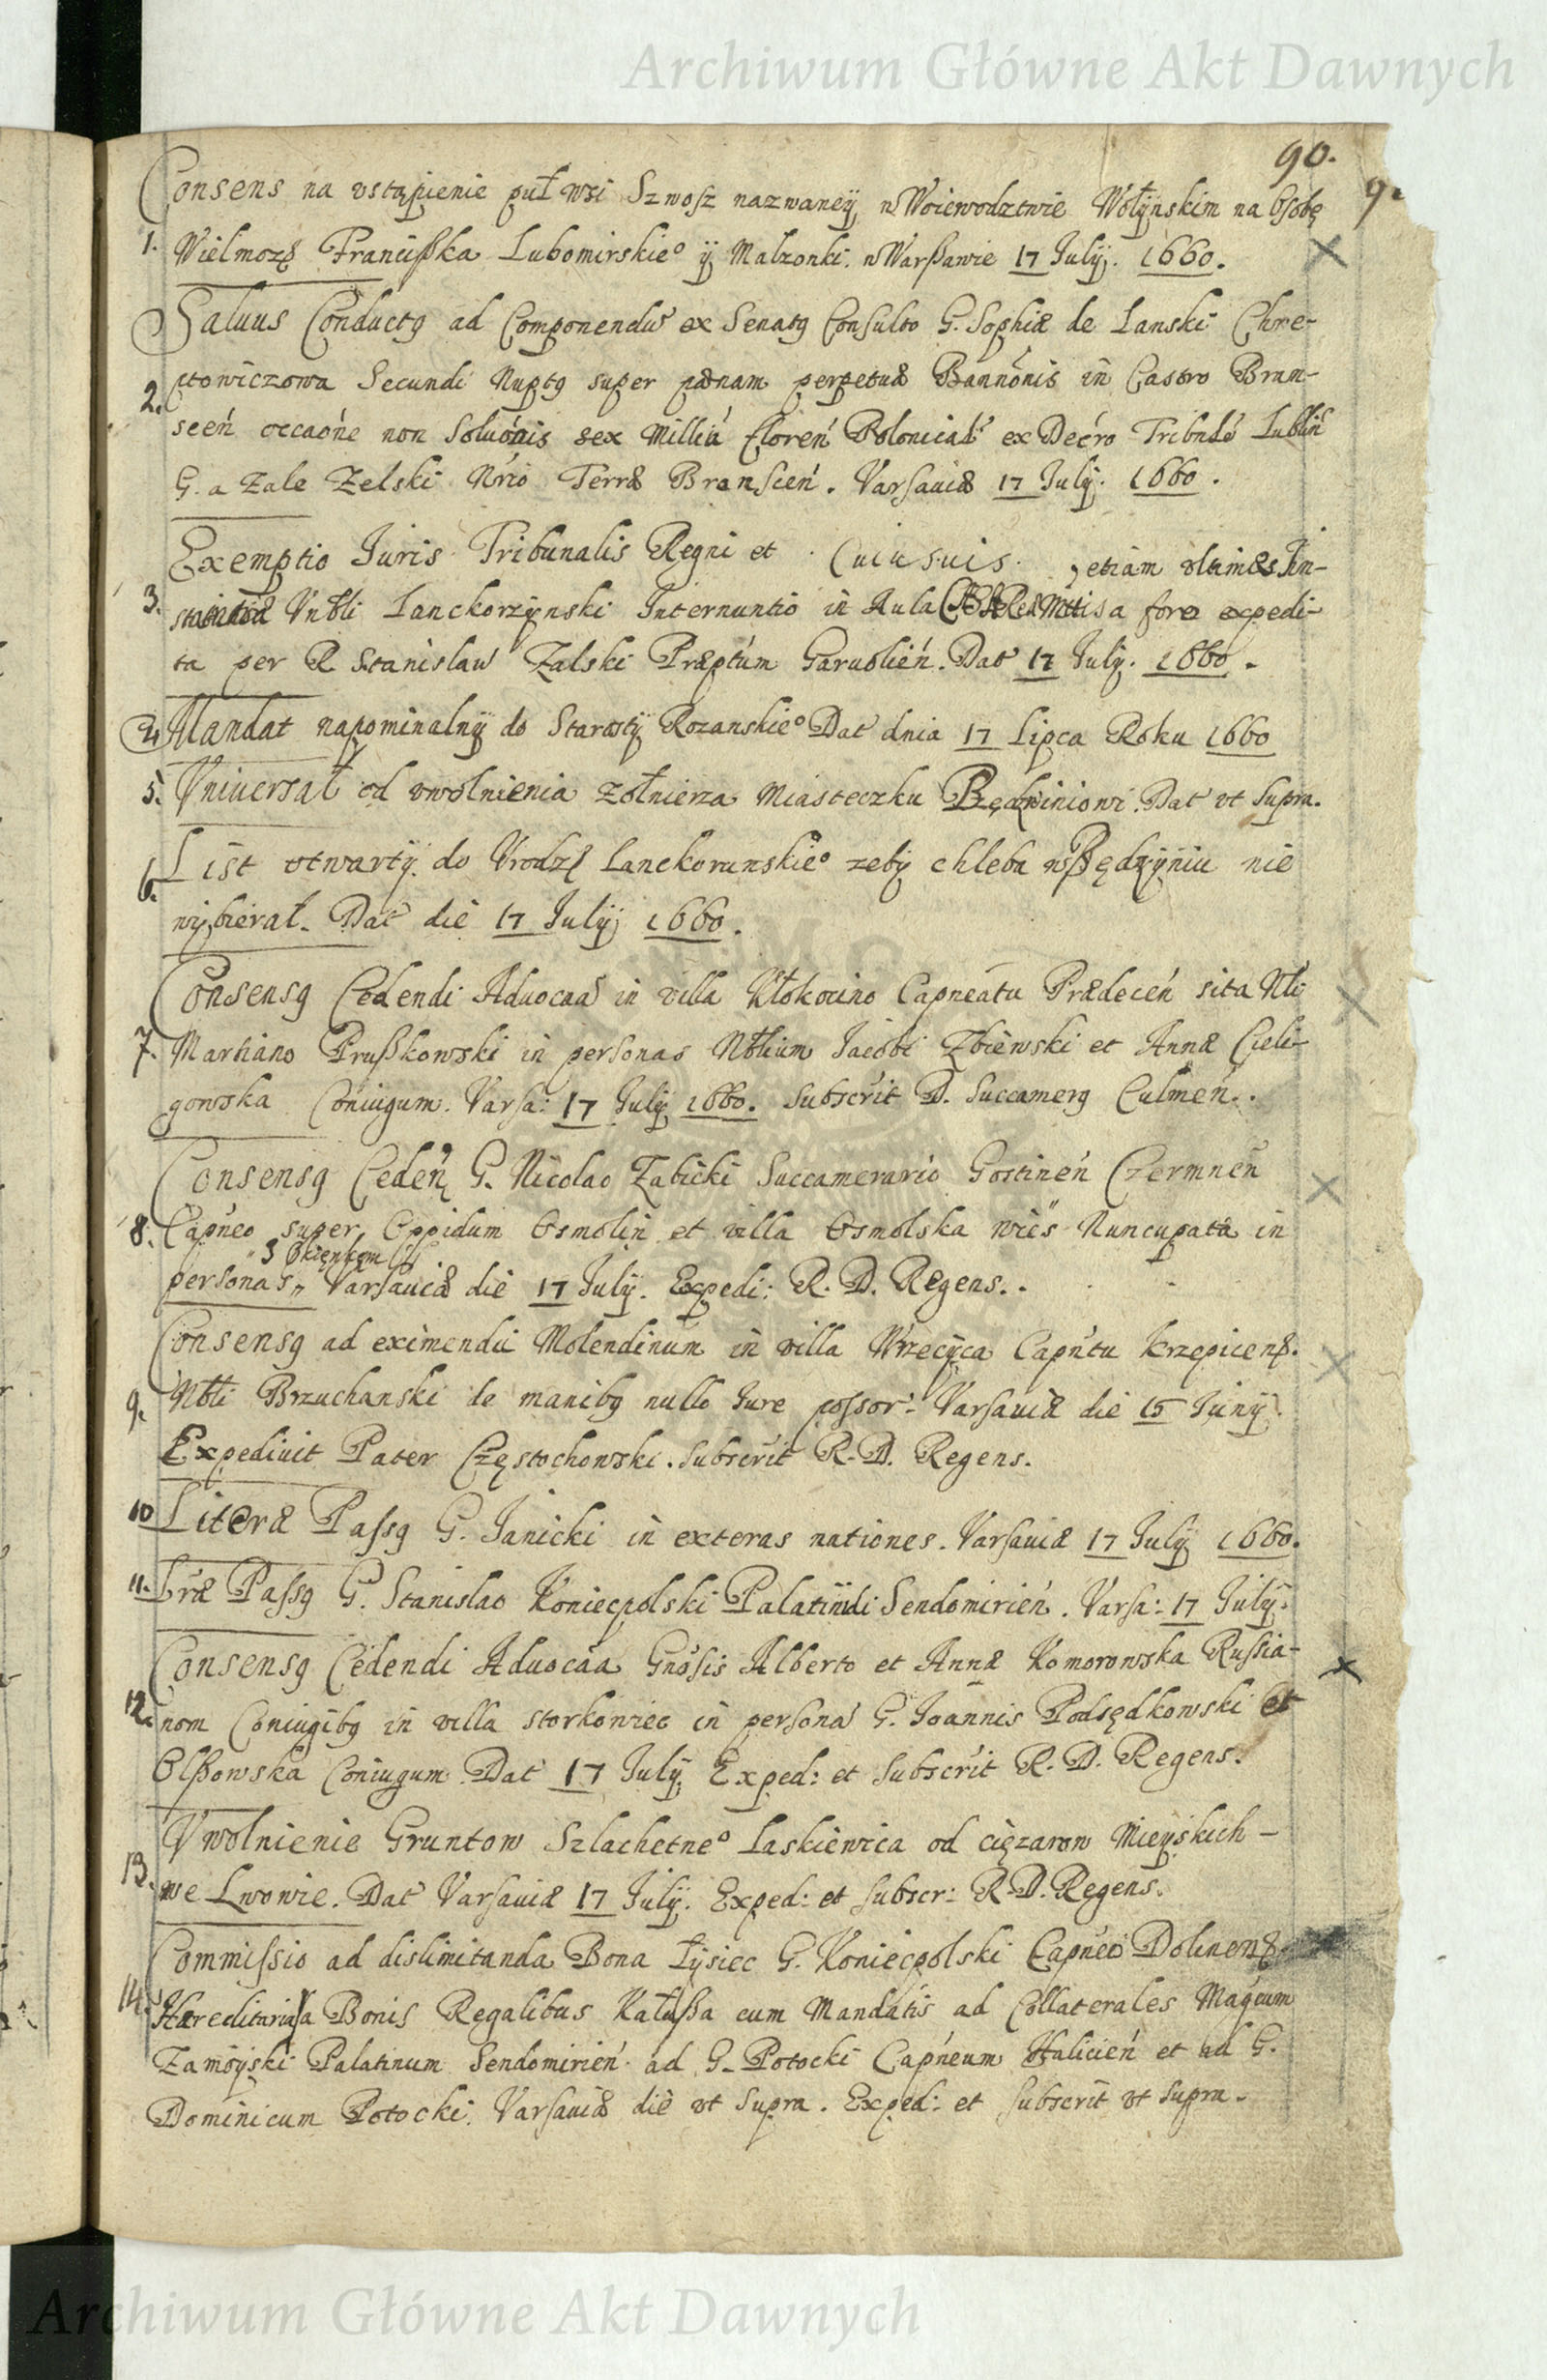 Archiwum Główne Akt Dawnych
90.
9.
Consens na vstąpienie puł wsi Szwosz nazwaneÿ w Woiewodztwie Wołÿnskim na Osobę
1. Wielmozę Franciszka Lubomirskie° ÿ Malzonki. w Warszawie 17 Julÿ. 1660.
Saluus Conductq ad Componendū ex Senatq Consulto G. Sophiæ de Lanski Chre-
2. ptowiczowa Secundi Nuptq super pænam perpetuæ Bannonis in Castro Bran-
sceń occaońe non Soluonis sex Milliū floreń Polonical' ex Decro Tribulń Lubliń
G. a Zale Zelski Nrio Terræ Bransceń. Varsauiæ 17 Julÿ. 1660.
Exemptio Juris Tribunalis Regni et Cuiusuis, etiam vltimæ In-
3. Vnbli Lanckorzÿnski Internuntio in Aula a fore expedi-
ta per R Stanislaw Zalski Præptúm Garuolień. Dat 17 Julÿ. 1660.
4. Mandat napominalnÿ do Starostÿ Rozanskie° Dat dnia 17 Lipca Roku 1660
5. Vniuersał od vwolnienia zołnierza Miasteczku Będziniowi. Dat vt supra.
6. List otwartÿ do Vrodzę Lanckorunskie° zebÿ chleba w Będzÿniu nie
wÿbierał. Dat die 17 Julÿ 1660.
Consensq Cedendi Aduocaa in villa Kłokocino Capneatu Prædeceń sita Nli
7. Martiano Pruszkowski in personas Nblium Jacobi Zbiewski et Annæ Cieli-
gowska Coniugum. Varsa: 17 Julÿ 1660. Subscrit D. Succamerq Culmeń.
Consensq Cedeń G. Nicolao Zabicki Succamerario Gostineń Czermneń
8. Capneo super Oppidum Osmolin et villa Osmolska wies Nuncupata in
G Okienkom
personas,, Varsauiæ die 17 Julÿ. Expedi: R. D. Regens.
Consensq ad eximendū Molendinum in villa Wrzecÿca Capntu Krzepicenß.
9. Nbli Brzuchanski de manibq nullo Jure possor: Varsauiæ die 15 Junÿ.
Expediuit Pater Częstochowski. Subscrit R. D. Regens.
10 Literæ Passq G. Janicki in exteras nationes. Varsauiæ 17 Julÿ 1660.
11. Lræ Passq G. Stanislao Koniecpolski Palatinidi Sendomirień. Varsa: 17 Julÿ.
Consensq Cedendi Aduocaa Gnosis Alberto et Annæ Komorowska Russia-
12. nom Coniugibq in villa Storkowiec in persona G. Joannis Podsędkowski et
Olszowska Coniugum. Dat 17 Julÿ. Exped: et Subscrit R. D. Regens.
Vwolnienie Gruntow Szlachetne° Laskiewica od ciężarow Mieÿskich –
13. we Lwowie. Dat Varsauiæ 17 Julÿ. Exped: et subscr: R. D. Regens.
Commissio ad dislimitanda Bona Łÿsiec G. Koniecpolski Capneo Dolinenß.
14. Hæreditaria a Bonis Regalibus Kałusza cum Mandatis ad Collaterales Magcum
Zamoÿski Palatinum Sendomirień. ad G. Potocki Capneum Halicień et ad G.
Dominicum Potocki. Varsauiæ die vt supra. Exped: et subscrit vt supra.
Archiwum Główne Akt Dawnych